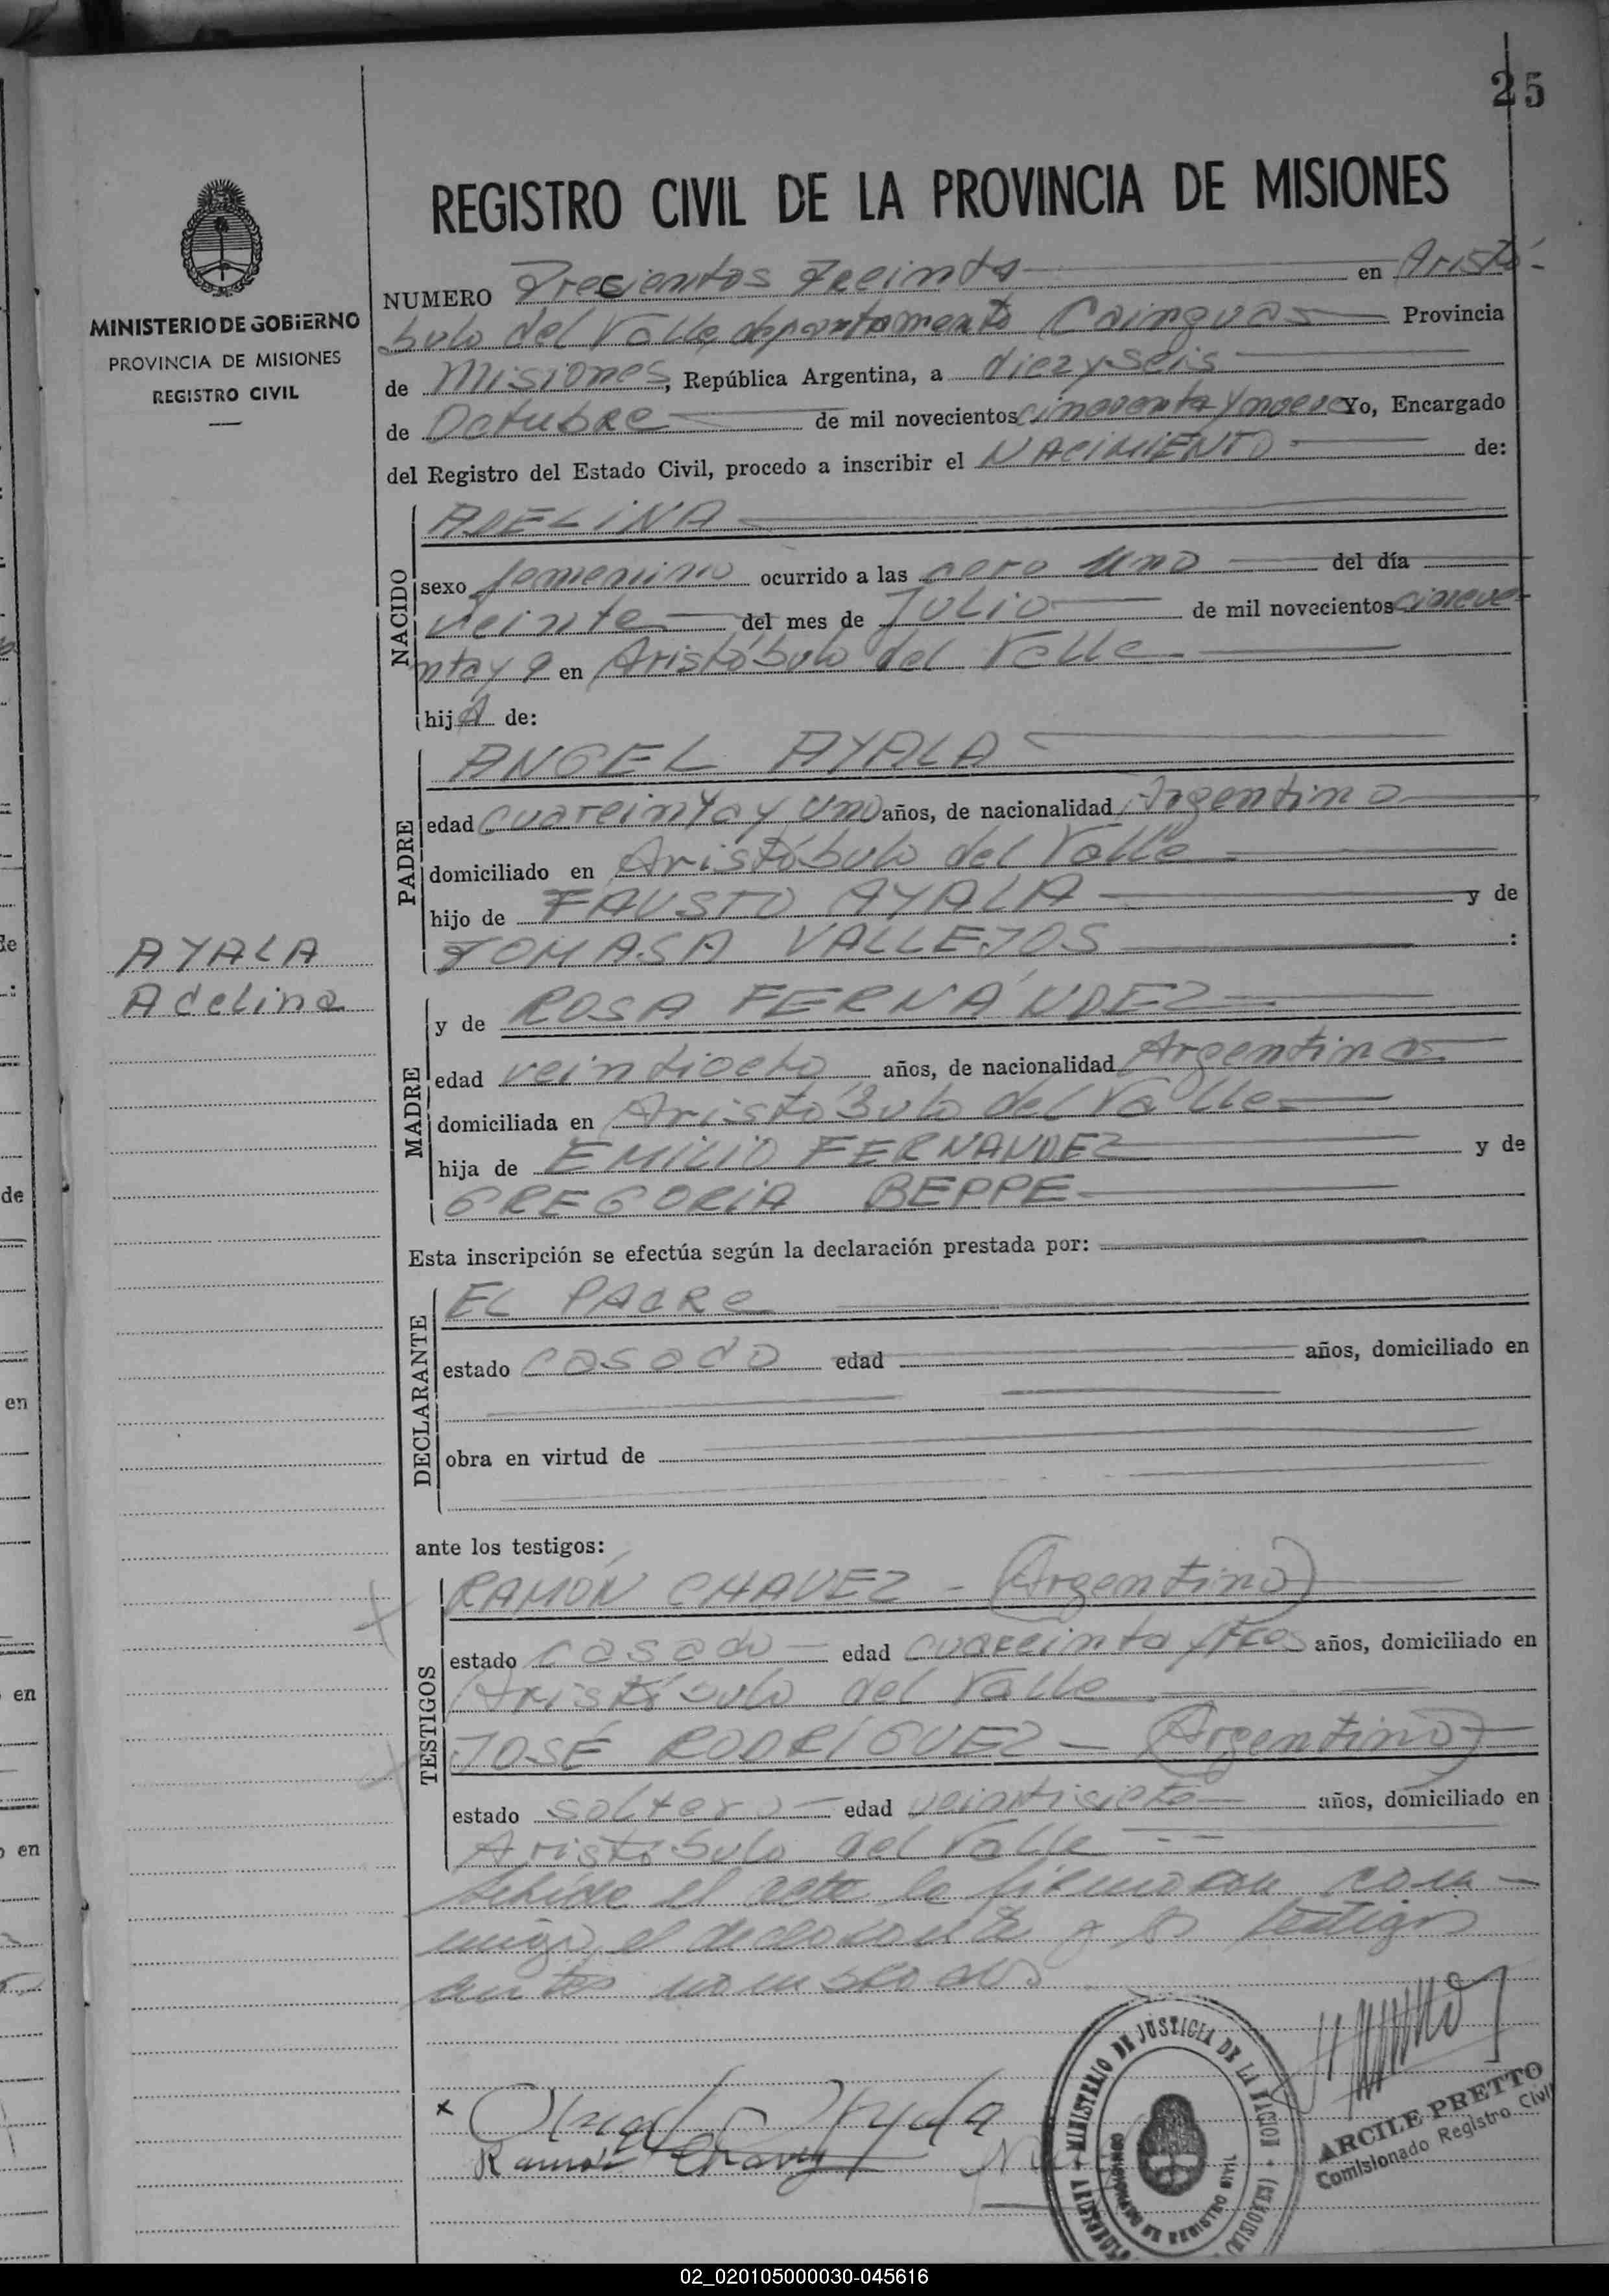 25
REGISTRO CIVIL DE LA PROVINCIA DE MISIONES
MINISTERIO DE GOBIERNO
PROVINCIA DE MISIONES
REGISTRO CIVIL
NUMERO Trecientos treinta en Aristó-
bulo del Valle, departamento Cainguas Provincia
de Misiones, República Argentina, a diez y seis
de Octubre de mil novecientos cincuenta y nueve Yo, Encargado
del Registro del Estado Civil, procedo a inscribir el NACIMIENTO de:
NACIDO
ADELINA
sexo femenino ocurrido a las cero uno del día
veinte del mes de Julio de mil novecientos cincue-
nta y 9 en Aristóbulo del Valle
hijA de:
PADRE
ANGEL AYALA
edad cuareinta y uno años, de nacionalidad Argentino
domiciliado en Aristóbulo del Valle
hijo de FAUSTO AYALA y de
TOMASA VALLEJOS :
AYALA
Adelina
MADRE
y de ROSA FERNÁNDEZ
edad veintiocho años, de nacionalidad Argentina
domiciliada en Aristóbulo del Valle
hija de EMILIO FERNANDEZ y de
GREGORIA BEPPE
Esta inscripción se efectúa según la declaración prestada por:
DECLARANTE
EL PADRE
estado casado edad años, domiciliado en
obra en virtud de
ante los testigos:
TESTIGOS
RAMÓN CHAVEZ - (Argentino)
estado casado edad cuareinta y tres años, domiciliado en
Aristóbulo del Valle
JOSÉ RODRÍGUEZ - (Argentino)
estado soltero edad veintisiete años, domiciliado en
Aristóbulo del Valle
el acto lo firmaron con-
migo, el declarante y los testigos
antes nombrados
x Angel Ayala
Ramón Chavez
MINISTERIO DE JUSTICIA DE LA NACION
REGISTRO CIVIL
ARCILE PRETTO
Comisionado Registro Civil
02_020105000030-045616